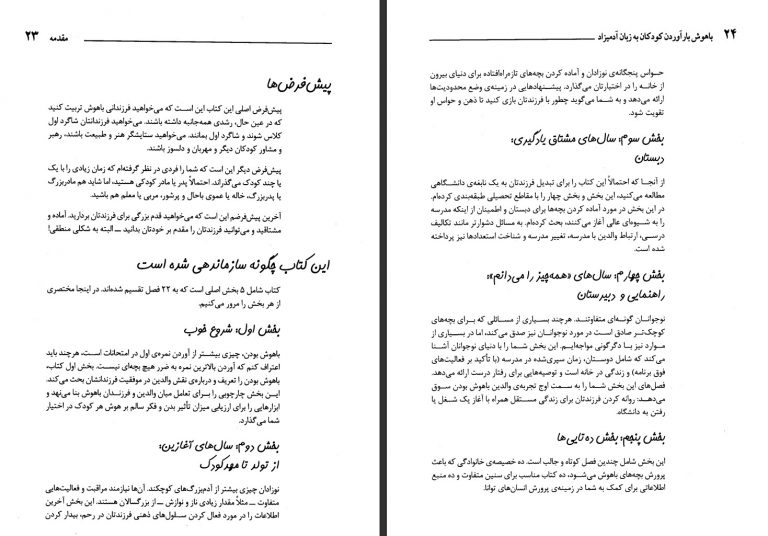 مقدمه ۲۳
پیش‌فرض‌ها
پیش‌فرض اصلی این کتاب این است که می‌خواهید فرزندانی باهوش تربیت کنید
که در عین حال، رشدی همه‌جانبه داشته باشند. می‌خواهید فرزندانتان شاگرد اول
کلاس شوند و شاگرد اول بمانند. می‌خواهید ستایشگر هنر و طبیعت باشند، رهبر
و مشاور کودکان دیگر و مهربان و دلسوز باشند.
پیش‌فرض دیگر این است که شما را فردی در نظر گرفته‌ام که زمان زیادی را با یک
یا چند کودک می‌گذراند. احتمالاً پدر یا مادر کودکی هستید، اما شاید هم مادربزرگ
یا پدربزرگ، خاله یا عموی باحال و پرشور، مربی یا معلم هم باشید.
آخرین پیش‌فرضم این است که می‌خواهید قدم بزرگی برای فرزندتان بردارید. آماده و
مشتاقید و می‌توانید فرزندتان را مقدم بر خودتان بدانید ــ البته به شکلی منطقی!
این کتاب چگونه سازماندهی شده است
کتاب شامل ۵ بخش اصلی است که به ۲۲ فصل تقسیم شده‌اند. در اینجا مختصری
از هر بخش را مرور می‌کنیم.
بخش اول: شروع خوب
باهوش بودن، چیزی بیشتر از آوردن نمره‌ی اول در امتحانات است، هرچند باید
اعتراف کنم که آوردن بالاترین نمره به ضرر هیچ بچه‌ای نیست. بخش اول کتاب،
باهوش بودن را تعریف و درباره‌ی نقش والدین در موفقیت فرزندانشان بحث می‌کند.
ایــن بخش چارچوبی را بــرای تعامل میان والدین و فرزنــدان باهوش بنا می‌نهد و
ابزارهایی را برای ارزیابی میزان تأثیر بدن و فکر سالم بر هوش هر کودک در اختیار
شما می‌گذارد.
بخش دوم: سال‌های آغازین:
از تولد تا مهدکودک
نوزادان چیزی بیشتر از آدم‌بزرگ‌های کوچکند. آن‌ها نیازمند مراقبت و فعالیت‌هایی
متفاوت ــ مثلاً مقدار زیادی ناز و نوازش ــ از بزرگسالان هستند. این بخش آخرین
اطلاعات را در مورد فعال کردن سـلول‌های ذهنی فرزندتان در رحم، بیدار کردن
۲۴ باهوش بار آوردن کودکان به زبان آدمیزاد
حواس پنجگانه‌ی نوزادان و آماده کردن بچه‌های تازه‌راه‌افتاده برای دنیای بیرون
از خانــه را در اختیارتان می‌گذارد. پیشــنهادهایی در زمینه‌ی وضع محدودیت‌ها
ارائه می‌دهد و به شما می‌گوید چطور با فرزندتان بازی کنید تا ذهن و حواس او
تقویت شود.
بخش سوم: سال‌های مشتاق یادگیری:
دبستان
از آنجا که احتمالاً این کتاب را برای تبدیل فرزندتان به یک نابغه‌ی دانشــگاهی
مطالعه می‌کنید، این بخش و بخش چهار را با مقاطع تحصیلی طبقه‌بندی کرده‌ام.
در این بخش در مورد آماده کردن بچه‌ها برای دبستان و اطمینان از اینکه مدرسه
را به شــیوه‌ای عالی آغاز می‌کنند، بحث کرده‌ام. به مسائل دشوارتر مانند تکالیف
درسـی، ارتباط والدین با مدرسه، تغییر مدرسه و شناخت استعدادها نیز پرداخته
شده است.
بخش چهارم: سال‌های «همه‌چیز را می‌دانم»:
راهنمایی و دبیرستان
نوجوانان گونه‌ای متفاوتنــد. هرچند بســیاری از مســائلی که بــرای بچه‌های
کوچک‌تــر صادق اسـت در مورد نوجوانــان نیز صدق می‌کند، اما در بسیاری از
موارد نیز بــا دگرگونی مواجه‌ایــم. این بخش شما را با دنیای نوجوانان آشنا
می‌کند که شامل دوستان، زمان سپری‌شده در مدرسه (با تأکید بر فعالیت‌های
فوق برنامه) و زندگی در خانه است و توصیه‌هایی برای رفتار درست ارائه می‌دهد.
فصل‌های این بخش شما را به سـمت اوج تجربه‌ی والدین باهوش بودن سـوق
می‌دهد: روانه کردن فرزندتان برای زندگی مستقل همراه با آغاز یک شـغل یا
رفتن به دانشگاه.
بخش پنجم: بخش ده‌تایی‌ها
این بخش شامل چندین فصل کوتاه و جالب است. ده خصیصه‌ی خانوادگی که باعث
پرورش بچه‌های باهوش می‌شـود، ده کتاب مناسب برای سنین متفاوت و ده منبع
اطلاعاتی برای کمک به شما در زمینه‌ی پرورش انسان‌های توانا.